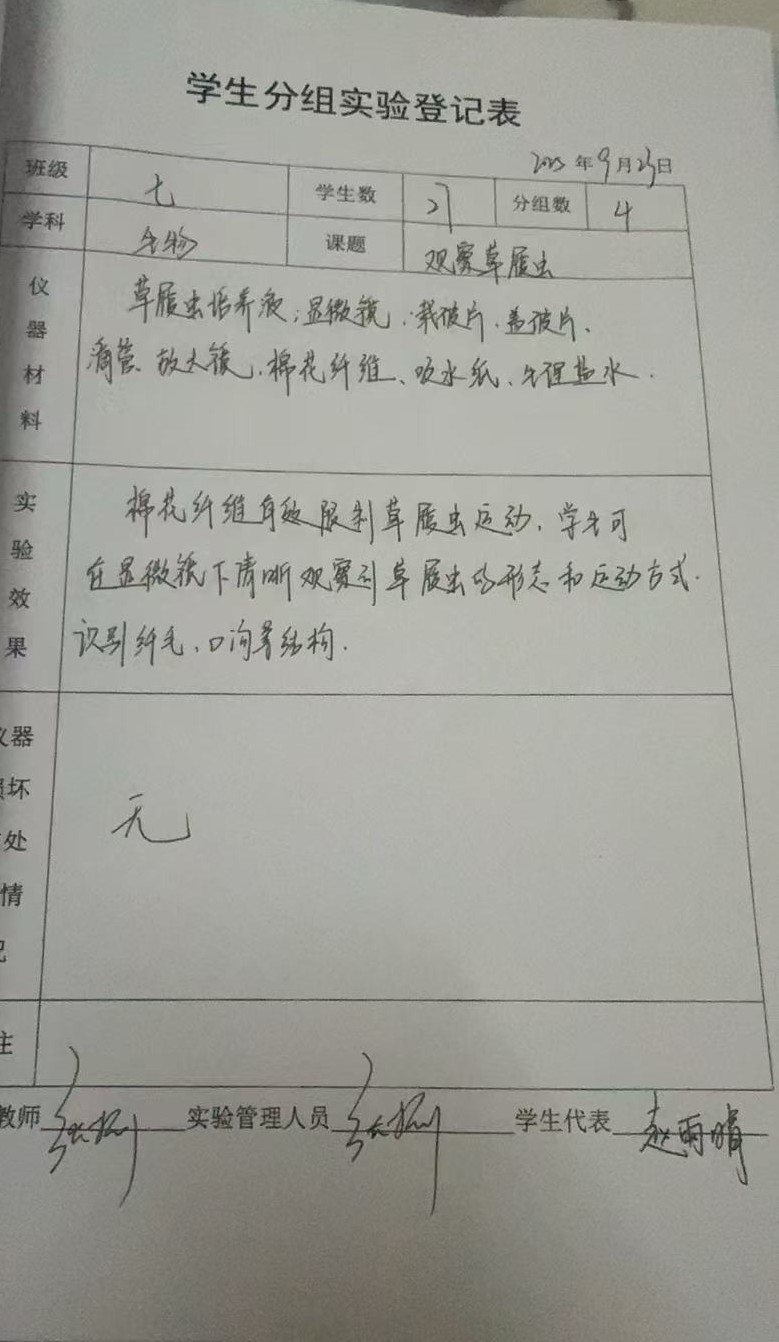 学生分组实验登记表
年9月23日
班级 七 学生数 27 分组数 4
学科 生物 课题 观察草履虫
仪器材料
草履虫培养液、显微镜、载玻片、盖玻片、
滴管、放大镜、棉花纤维、吸水纸、生理盐水.
实验效果
棉花纤维有效限制草履虫运动,学生可
在显微镜下清晰观察到草履虫的形态和运动方式.
识别纤毛、口沟等结构.
仪器损坏处情况
无
注
教师 实验管理人员 学生代表 赵雨晴